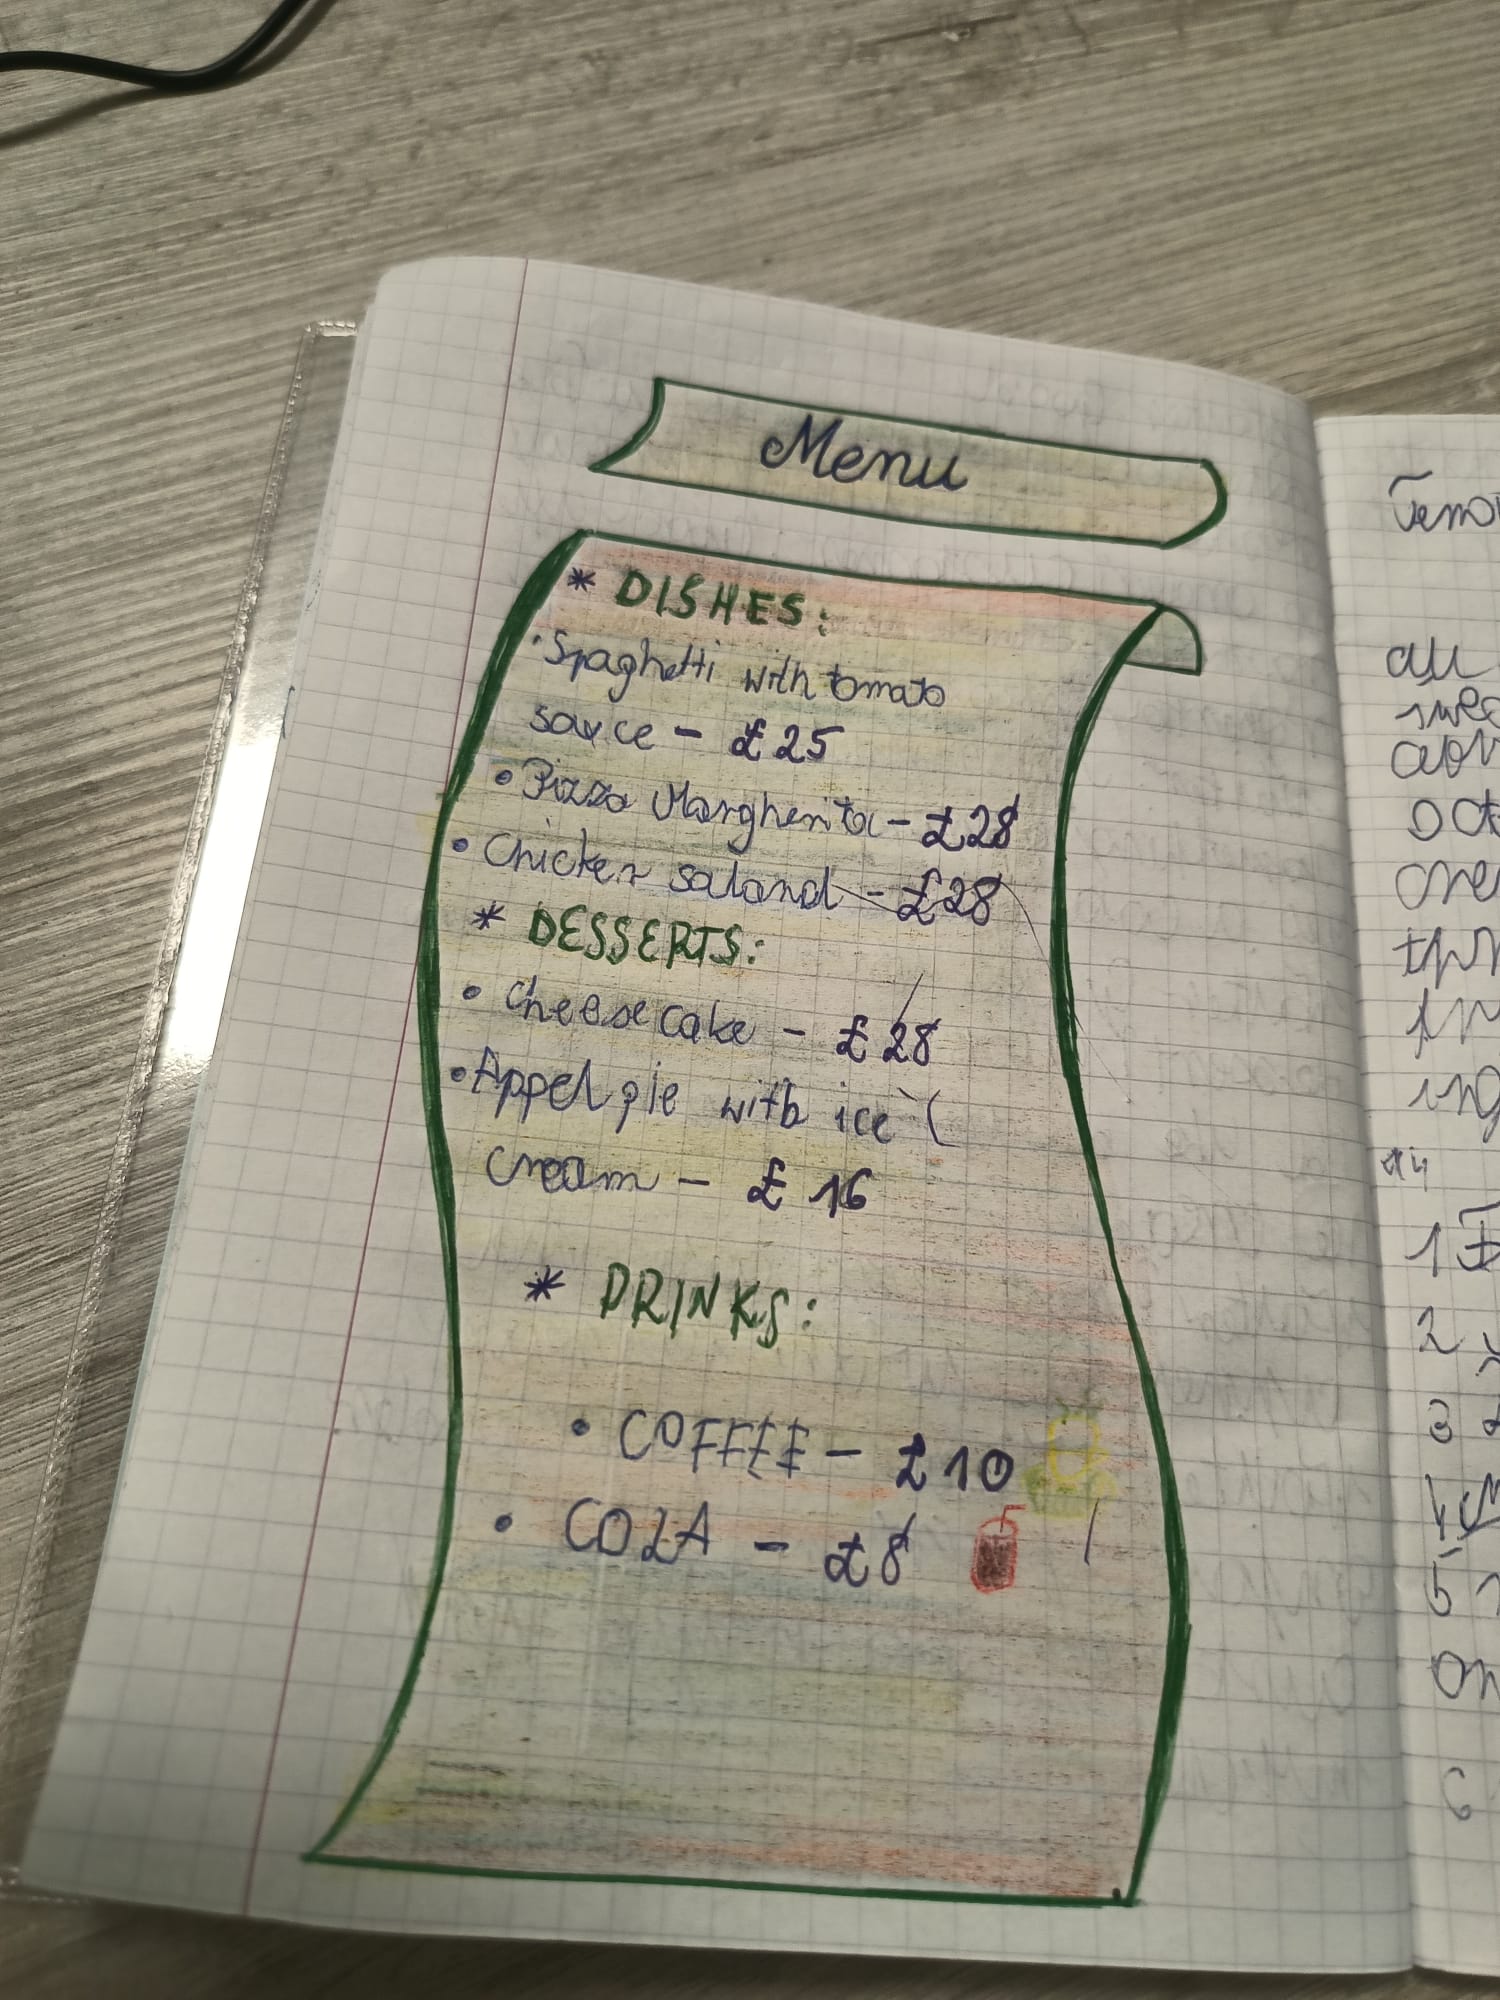 Menu
* DISHES:
• Spaghetti with tomato
sauce - £25
• Pizza Margherita - £28
• Chicken saland - £28
* DESSERTS:
• cheese cake - £28
• Appel pie with ice
cream - £16
* DRINKS:
• COFFEE - £10
• COLA - £8
1
2
3
4
5
6